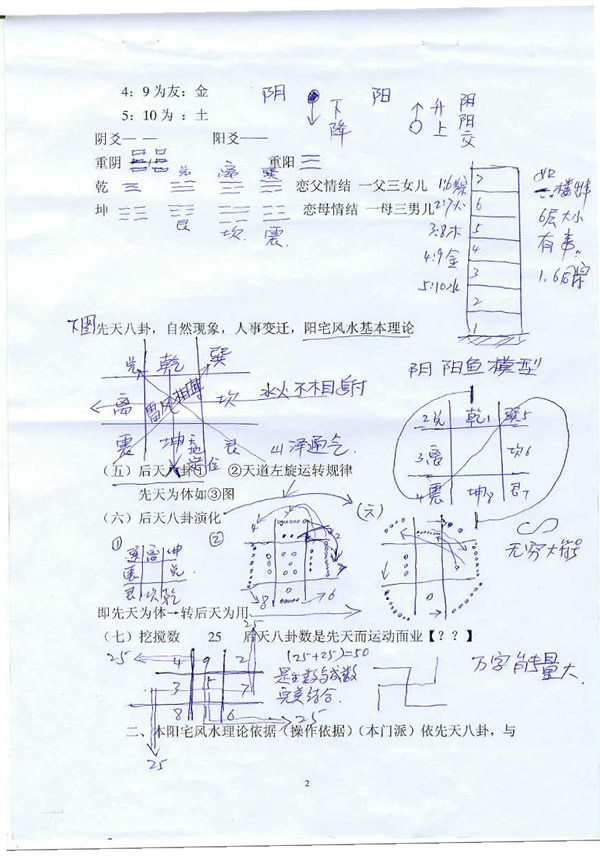 4：9为友：金
5：10为 ：土
阴 阳
下降
升上
阴阳交
阴爻— — 阳爻——
重阴 重阳
兑 离 巽
乾 恋父情结 一父三女儿
坤 恋母情结 一母三男儿
艮 坎 震
2:7火
3:8木
4:9金
5:10水
7
6
5
4
3
2
1
6层大小
有事
下图先天八卦，自然现象，人事变迁，阳宅风水基本理论
兑 乾 巽
离 雷风相搏 坎
震 坤 艮
水火不相射
山泽通气
阴阳鱼模型
2兑 乾1 巽5
3离 坎6
4震 坤8 艮7
（五）后天八卦① ②天道左旋运转规律
先天为体如③图
（六）后天八卦演化
(六)
①
巽 离 坤
震 兑
艮 坎 乾
②
8 6
无穷大
即先天为体→转后天为用
（七）挖搅数 25 后天八卦数是先天而运动面业【？？】
25
25
4 9 2
3 5 7
8 1 6
25
25
(25+25)=50
是生数与成数
完美结合
万字能量大
二、本阳宅风水理论依据（操作依据）（本门派）依先天八卦，与
2